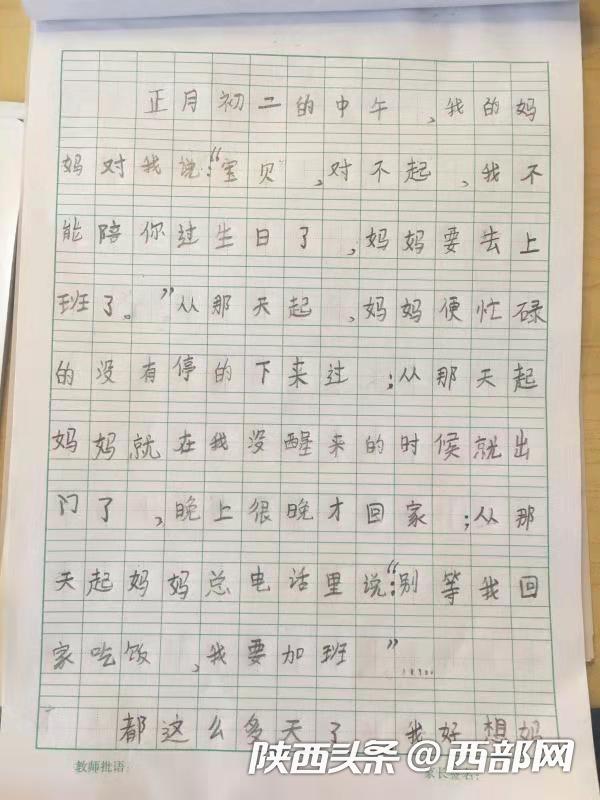 正月初二的中午,我的妈
妈对我说:“宝贝,对不起,我不
能陪你过生日了,妈妈要去上
班了。”从那天起,妈妈便忙碌
的没有停的下来过;从那天起
妈妈就在我没醒来的时候就出
门了,晚上很晚才回家;从那
天起妈妈总电话里说:“别等我回
家吃饭,我要加班”......
都这么多天了 我好想妈
教师批语:
家长签名:
陕西头条@西部网